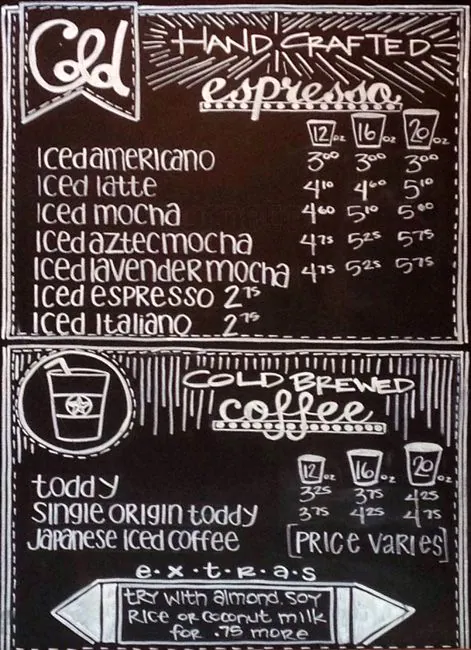 Cold
HAND CRAFTED
espresso
12 oz 16 oz 20 oz
Iced americano 3⁰⁰ 3⁰⁰ 3⁰⁰
Iced latte 4¹⁰ 4⁶⁰ 5¹⁰
Iced mocha 4⁶⁰ 5¹⁰
Iced aztec mocha 4⁷⁵ 5²⁵ 5⁷⁵
Iced lavender mocha 4⁷⁵ 5²⁵ 5⁷⁵
Iced espresso 2⁷⁵
Iced Italiano 2⁷⁵
COLD BREWED
coffee
12 oz 16 oz 20 oz
toddy 3²⁵ 3⁷⁵ 4²⁵
Single origin toddy 3⁷⁵ 4²⁵ 4⁷⁵
Japanese Iced coffee [PRICE VARIES]
e•x•t•r•a•s
try with almond, soy
Rice or coconut milk
for .75 more